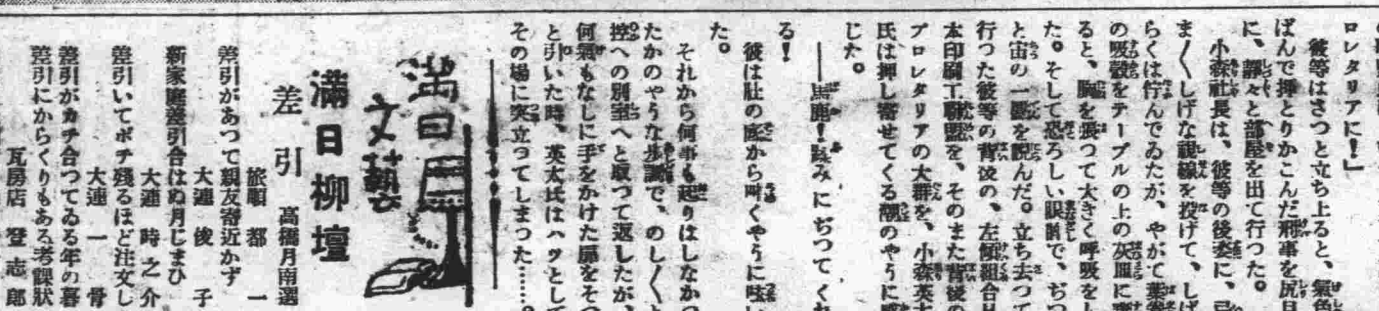 ロレタリアに！」
彼等はさつと立ち上ると、氣色
ばんで押とりかこんだ刑事を尻目
に、靜々と部屋を出て行つた。
小森社長は、彼等の後姿に、
ま〲しげな視線を投げて、しば
らくは佇んでゐたが、やがて葉卷
の吸殼をテーブルの上の灰皿に
ると、胸を張つて大きく呼吸をし
た。そして恐ろしい眼眸で、ぢつ
と宙の一髪を睨んだ。立ち去つて
行つた彼等の背後の、左傾組合日
本印刷工聯盟を、そのまた背後の
プロレタリアの大群を、小森英太
氏は押し寄せてくる潮のやうに感
じた。
――馬鹿！踏みにぢつてくれ
る！
彼は肚の底から叫くやうに呟い
た。
それから何事も起りはしなかつ
たかのやうな步調で、のし〱と
控への別室へと取つて返したが、
何氣もなしに手をかけた扉をそつ
と引いた時、英太氏はハッとして
その場に突立つてしまつた……。
満日
文藝
滿日柳壇
差引 高橋月南選
旅順 都一
差引があつて親友寄近かず
大連 俊子
新家庭差引合はぬ月じまひ
大連 時之介
差引いてポチ殘るほど注文し
大連 一骨
差引がカチ合つてゐる年の暮
瓦房店 登志郎
差引にからくりもある考課狀